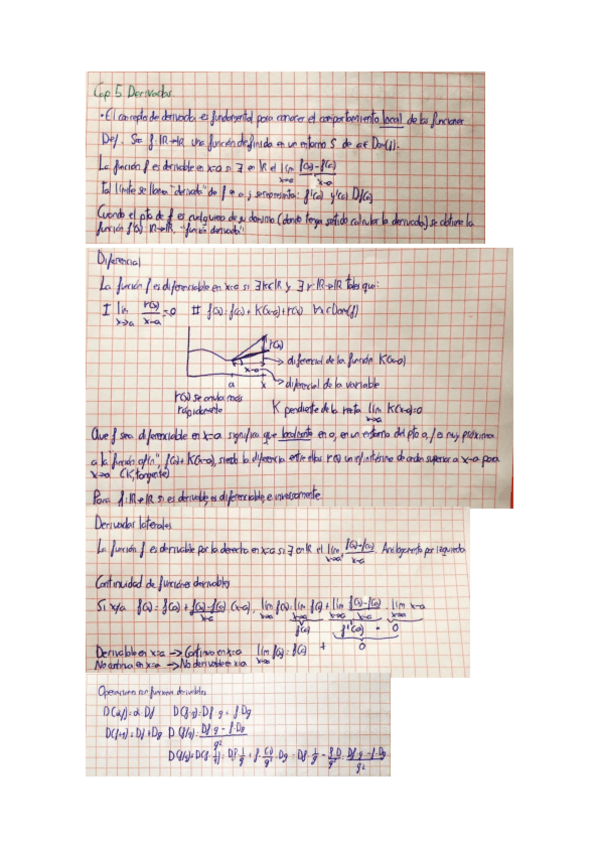 Cap 5 Derivadas
· El concepto de derivada es fundamental para conocer el comportamiento local de las funciones
Def. Sea f: ℝ→ℝ una función definida en un entorno S de a∈Dom(f).
La función f es derivable en x=a si ∃ en ℝ el lim x→a f(x)-f(a)/x-a
Tal límite se llama "derivada" de f en a y se representa: f'(a) y'(a) Df(a)
Cuando el pto de f es cualquiera de su dominio (donde tenga sentido calcular la derivada) se obtiene la
función f'(x): ℝ→ℝ, "función derivada"
Diferencial
La función f es diferenciable en x=a si ∃ k∈ℝ y ∃ r: ℝ→ℝ tales que:
I lim x→a r(x)/x-a =0 II f(x)=f(a)+K(x-a)+r(x) ∀x∈Dom(f)
r(x)
→ diferencial de la función K(x-a)
x-a
→ diferencial de la variable
a x
r(x) se anula más
rápidamente
K pendiente de la recta lim x→a K(x-a)=0
Que f sea diferenciable en x=a significa que localmente en a, en un entorno del pto a, f es muy próxima
a la "función afín", f(a)+K(x-a), siendo la diferencia entre ellas r(x) un infinitésimo de orden superior a x-a para
x→a (K, tangente)
Para f: ℝ→ℝ si es derivable, es diferenciable, e inversamente
Derivadas laterales
La función f es derivable por la derecha en x=a si ∃ en ℝ el lim x→a⁺ f(x)-f(a)/x-a. Análogamente por izquierda
Continuidad de funciones derivables
Si x≠a f(x)=f(a)+ f(x)-f(a)/x-a (x-a), lim x→a f(x)= lim x→a f(a)+ lim x→a f(x)-f(a)/x-a · lim x→a x-a
f(a) f'(a) · 0
Derivable en x=a → Continua en x=a lim x→a f(x)=f(a) + 0
No continua en x=a → No derivable en x=a
Operaciones con funciones derivables
D(αf)=α Df D(f·g)=Df·g+f·Dg
D(f+g)=Df+Dg D(f/g)= Df·g-f·Dg/g²
D(f/g)=D(f·1/g)=Df·1/g+f·(-1)/g²·Dg=Df·1/g - f·Dg/g² = Df·g-f·Dg/g²